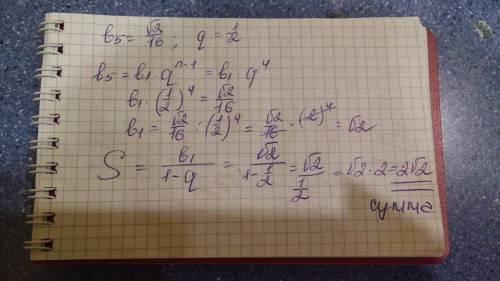 b₅ = √2/16 ; q = 1/2
b₅ = b₁ · q^(n-1) = b₁ q⁴
b₁ · (1/2)⁴ = √2/16
b₁ = √2/16 · (1/2)⁴ = √2/16 · (2)⁴ = √2
S = b₁/(1-q) = √2/(1-1/2) = √2/(1/2) = √2 · 2 = 2√2
сумма